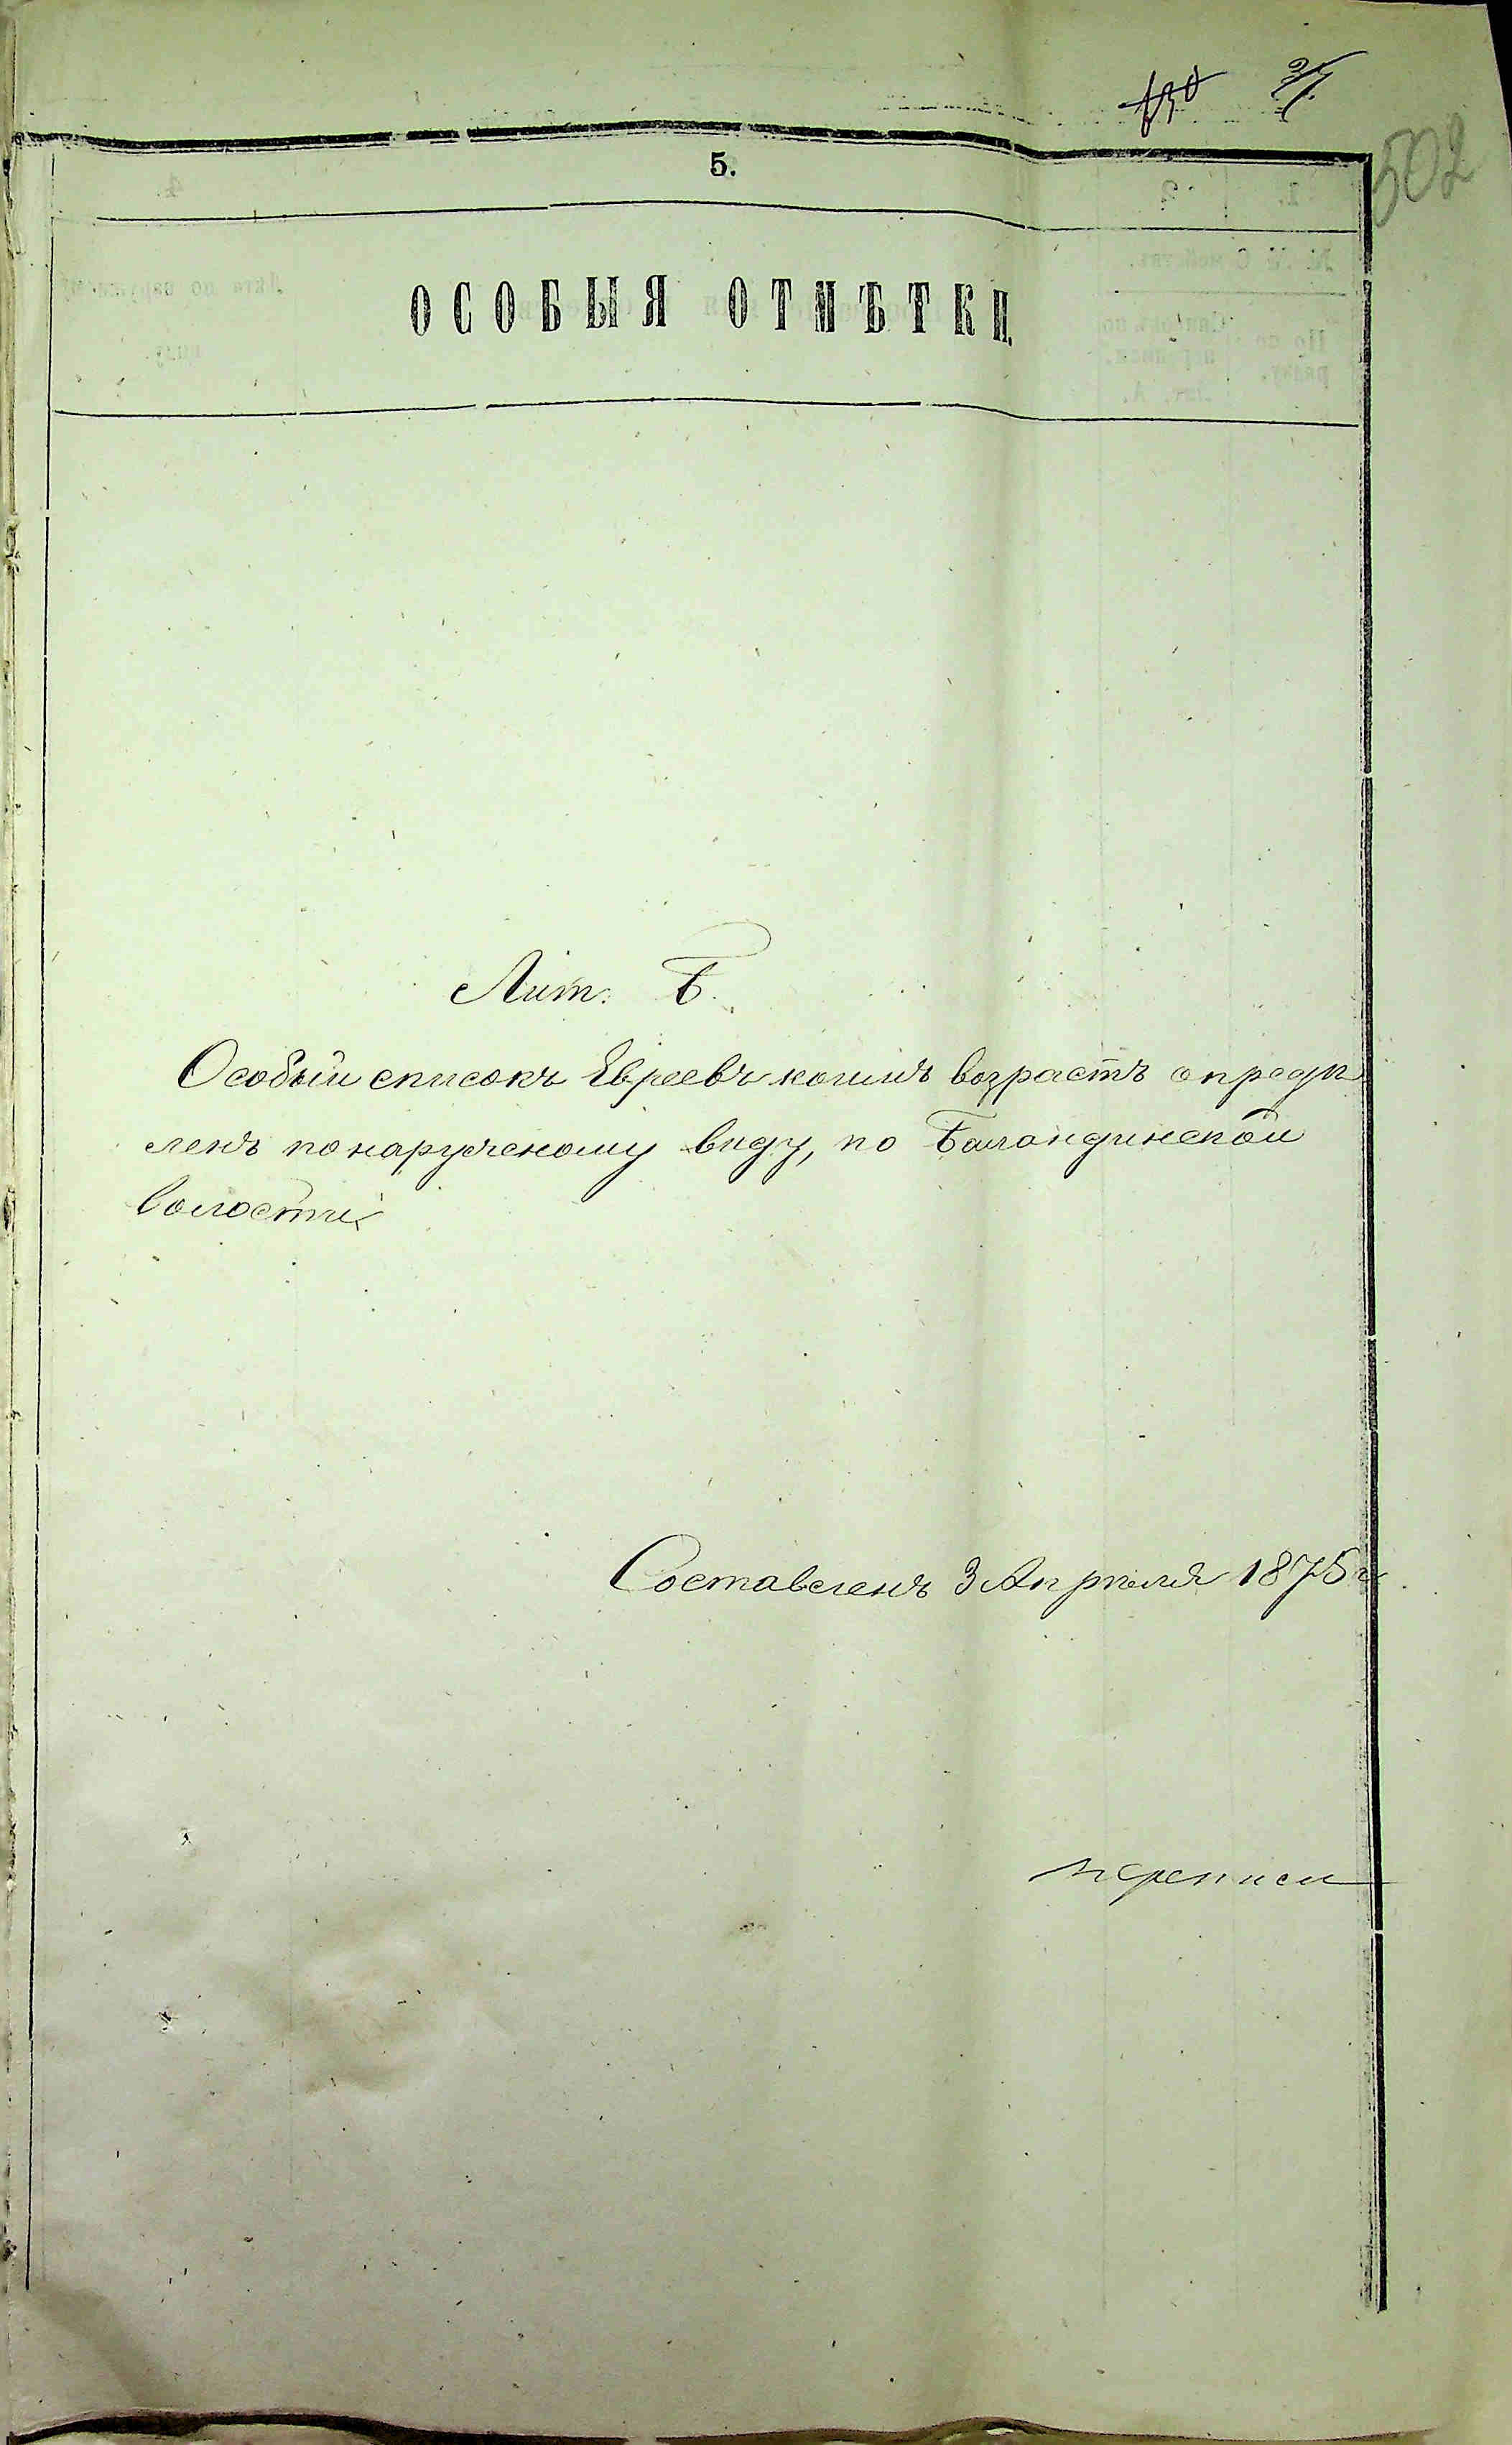 37
502
5.
ОСОБЫЯ ОТМѢТКИ.
Лит. Б.
Особый списокъ Евреевъ коимъ возрастъ опредѣ
ленъ по наружному виду, по Баландинской
волости
Составленъ 3 Апрѣля 1875 г
переписи